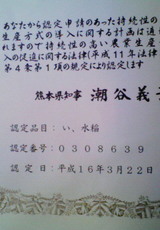 あなたから認定申請のあった持続性の
生産方式の導入に関する計画は適
れますので持続性の高い農業生産
入の促進に関する法律(平成11年法律
第4条第1項の規定により認定します
熊本県知事 潮谷義
認定品目：い、水稲
認定番号：0308639
認定日：平成16年3月22日